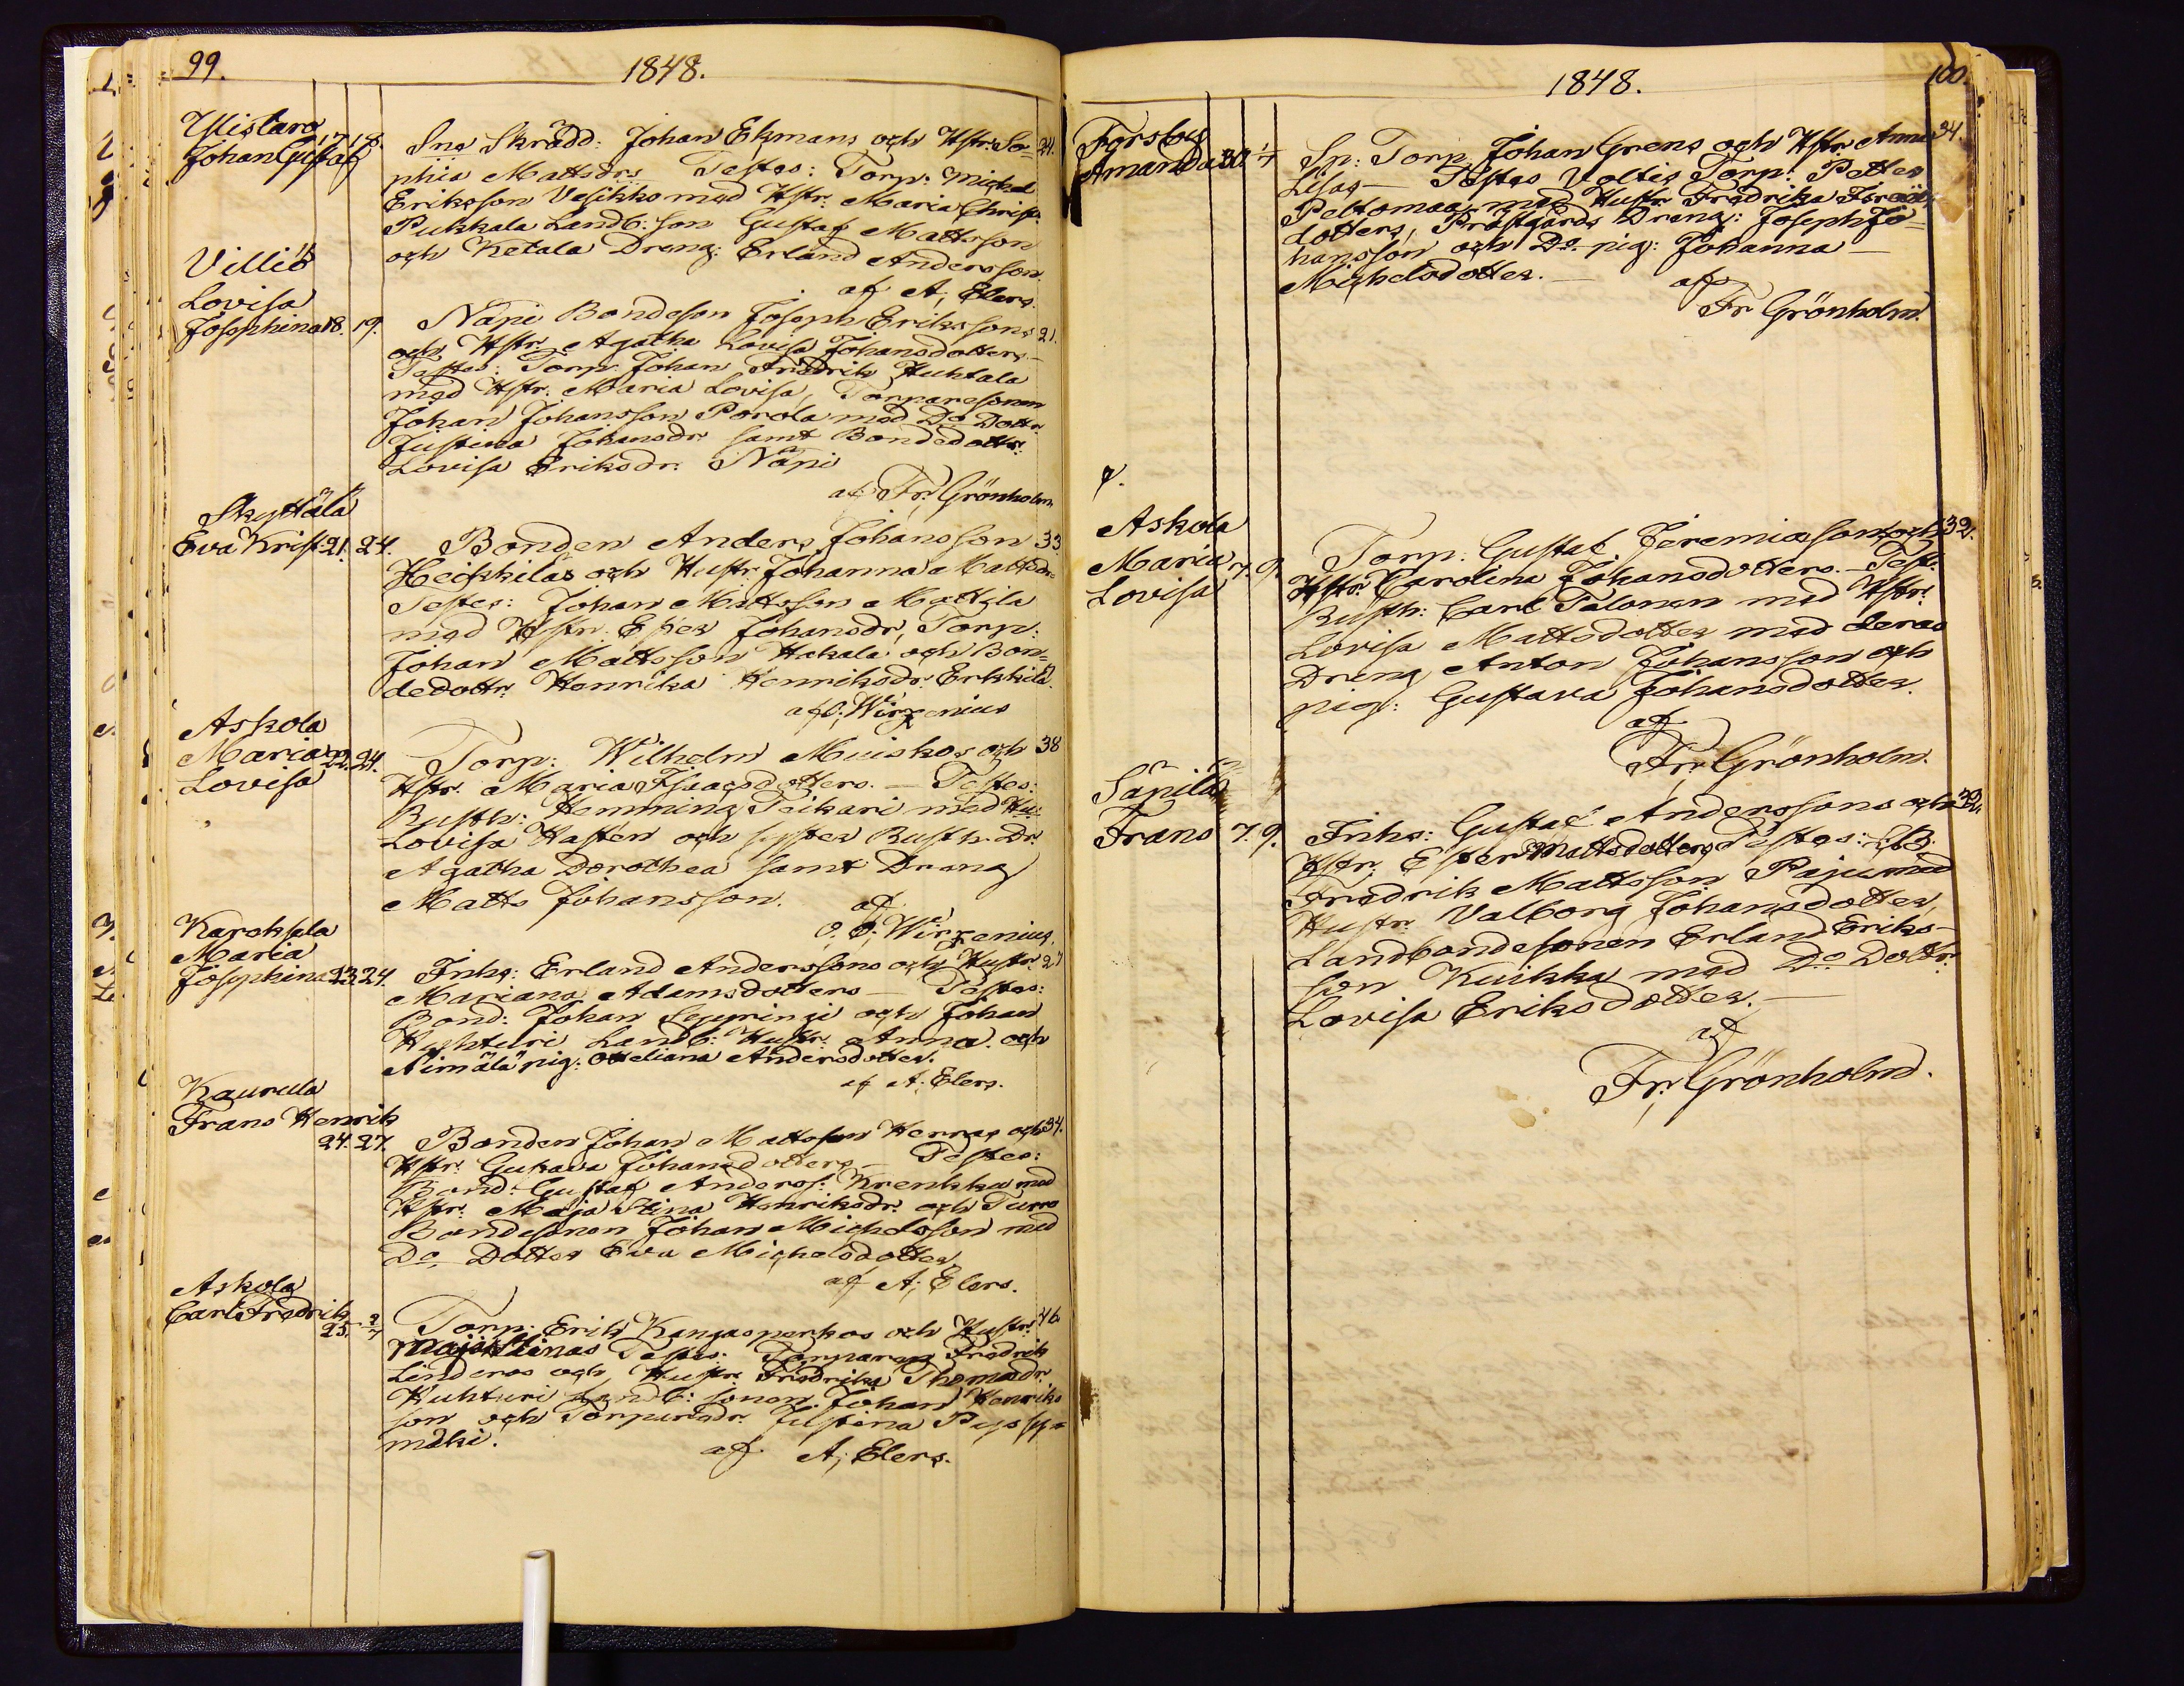 99.
1848.
Yliskara
Johan Gustaf 17. 18.
Sns Skrädd: Johan Ekmans och Hstr: So- 24.
phia Mattsdrs Testes: Torp: Michel
Eriksson Vesikko med Hstr: Maria Christ:
Pukkala Landb: son Gustaf Mattsson
och Ketala Dreng: Erland Andersson.
af A; Elers.
Villiö
Lovisa
Josephina 18. 19.
Näpi Bondeson Joseph Erikssons 21.
och Hstr: Agatha Lovisa Johansdotters.—
Testes: Torp: Johan Fredrik Huhtala
med Hstr: Maria Lovisa, Torparesonen
Johan Johansson Porola med Do Dottr.
Justina Johansdr samt Bondedottr:
Lovisa Eriksdr. Näpi
af Fr; Grönholm
Skyttälä
Eva Krist: 21. 24.
Bonden Anders Johansson 33
Heikkiläs och Hustr: Johanna Mattsdrs
Testes: Johan Mattsson Mattila
med Hstr: Ester Johansdr, Torp:
Johan Mattsson Hakala och Bon=
dedottr. Henrika Henriksdr Erkkilä.
af O; Wirzenius
Askola
Maria 22. 24.
Lovisa
Torp: Wilhelm Muiskos och 38
Hstr: Maria Isaacsdotters. — Testes:
Rusth: Hemming Peikari med Hu:
Lovisa Hasten och syster Rusth. Dr.
Agatha Dorothea samt Dräng
Matts Johansson.
af
O. O; Wirzenius.
Karoksela
Maria
Josephina 23. 24.
Inhs: Erland Anderssons och Hustr: 27
Mariana Adamsdotters — Testes:
Bond: Johan Seppringi och Johan
Huhturi Landb: Hustr: Anna och
Nimälä pig: Otteliana Andersdotter.
af A. Elers.
Kaurula
Frans Henrik
24. 27.
Bonden Johan Mattsson Hernas och 34.
Hstr: Gustava Johansdotters — Testes:
Bond: Gustaf Anderss: Krenkku med
Hstr: Maja Stina Henriksdr. och Turro
Bondesonen Johan Michelsson med
Do Dotter Eva Michelsdotter,
af A; Elers.
Askola
Carl Fredrik
25. 2/7
Torp: Erik Kangasperkos och Hustr: 46
Majastinas Testes: Torparen Fredrik
Linderos och Hustr: Fredrika Thomasdr.
Huhturi Landb: sonen Johan Henriks
son och Torparedr. Justina Pyssy=
mäki.
af A; Elers.
1848.
100.
Forsby
Amanda 30. 1/7
Sn: Torp. Johan Grens och Hstr: Anna 24.
Lisas — Testes Voltis Torp: Petter
Peltomaa med Hustr: Fredrika Fredr:
dotters, Prästgårds Dreng: Joseph Jo-
hansson och Do. pig: Johanna —
Michelsdotter. —
af
Fr Grönholm.
7.
Askola
Maria 7. 9.
Lovisa
Torp. Gustaf. Jeremiasson och 32.
Hstr: Carolina Johansdotters. — Test:
Rusth: Carl Talonen med Hstr:
Lovisa Mattsdotter med deras
Dreng Anton Johansson och
pig: Gustava Johansdotter.
af
Fr; Grönholm.
Säpilä
Frans 7. 9.
Inhs: Gustaf Anderssons och 32.
Hstr: Ester Mattsdotters Testes: LB:
Fredrik Mattsson Paju med
Hustr: Valborg Johansdotter,
Landbondesonen Erland Eriks-
son Kuikka med Do Dottr.
Lovisa Eriksdotter. —
af
Fr; Grönholm.